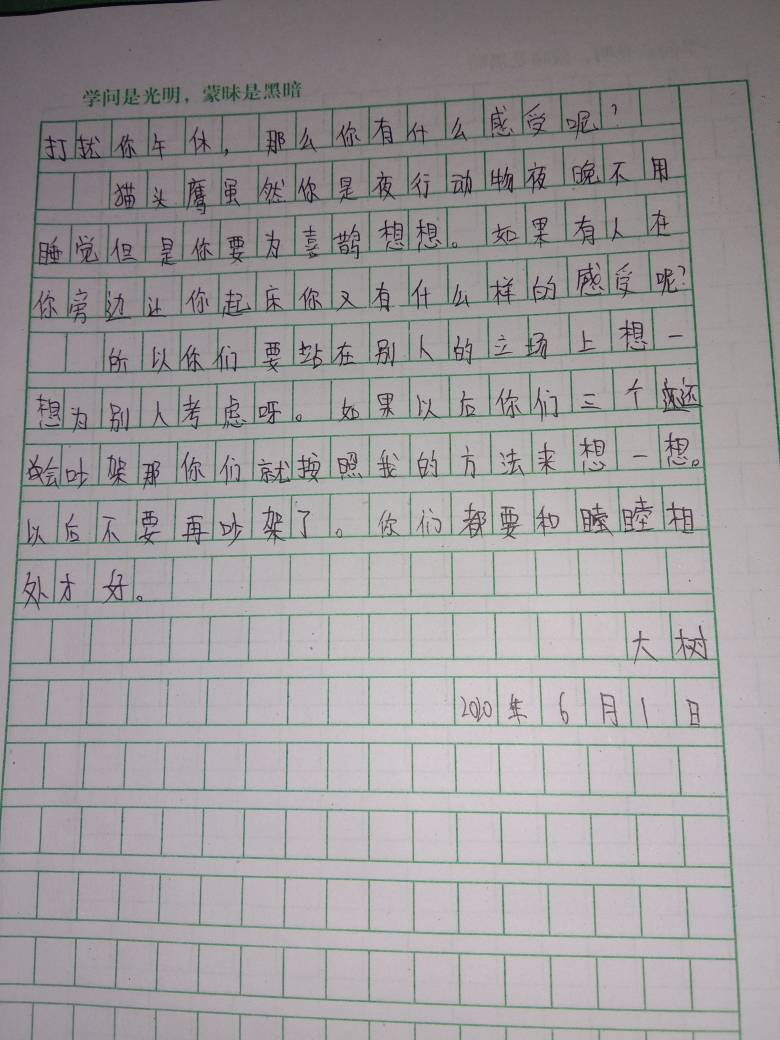 学问是光明，蒙昧是黑暗
打扰你午休，那么你有什么感受呢？
猫头鹰虽然你是夜行动物夜晚不用
睡觉但是你要为喜鹊想想。如果有人在
你旁边让你起床你又有什么样的感受呢？
所以你们要站在别人的立场上想一
想为别人考虑呀。如果以后你们三个还
会吵架那你们就按照我的方法来想一想。
以后不要再吵架了。你们都要和睦睦相
处才好。
大树
2020年6月1日